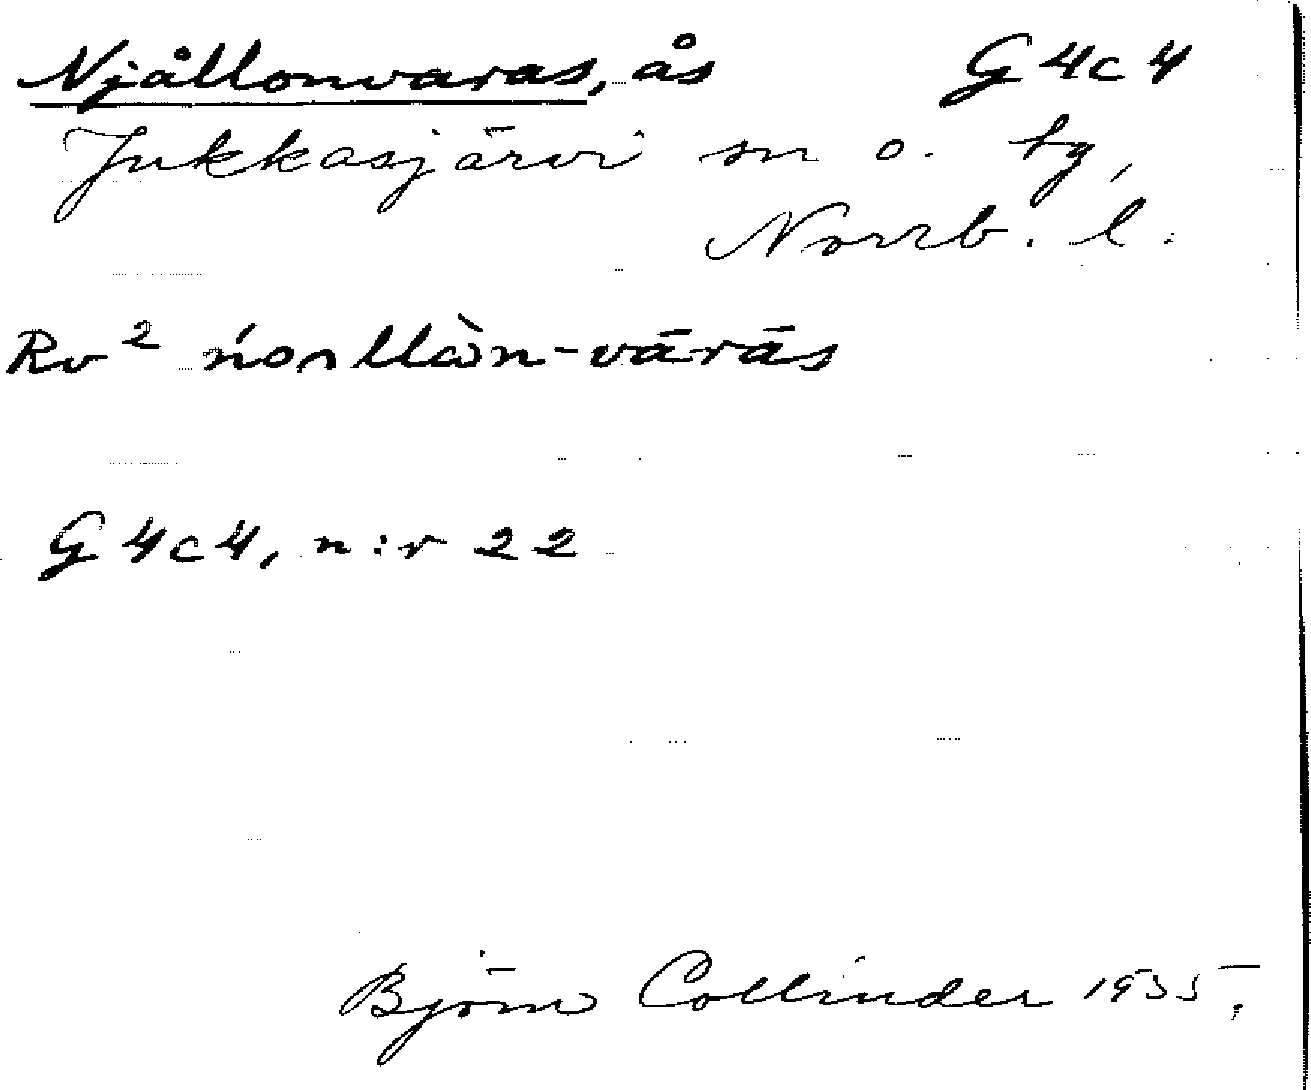 Njållonvaras, ås G4c4
Jukkasjärvi sn o. tg,
Norrb. l.
Rv²
G4c4, n:r 22
Björn Collinder 1935.